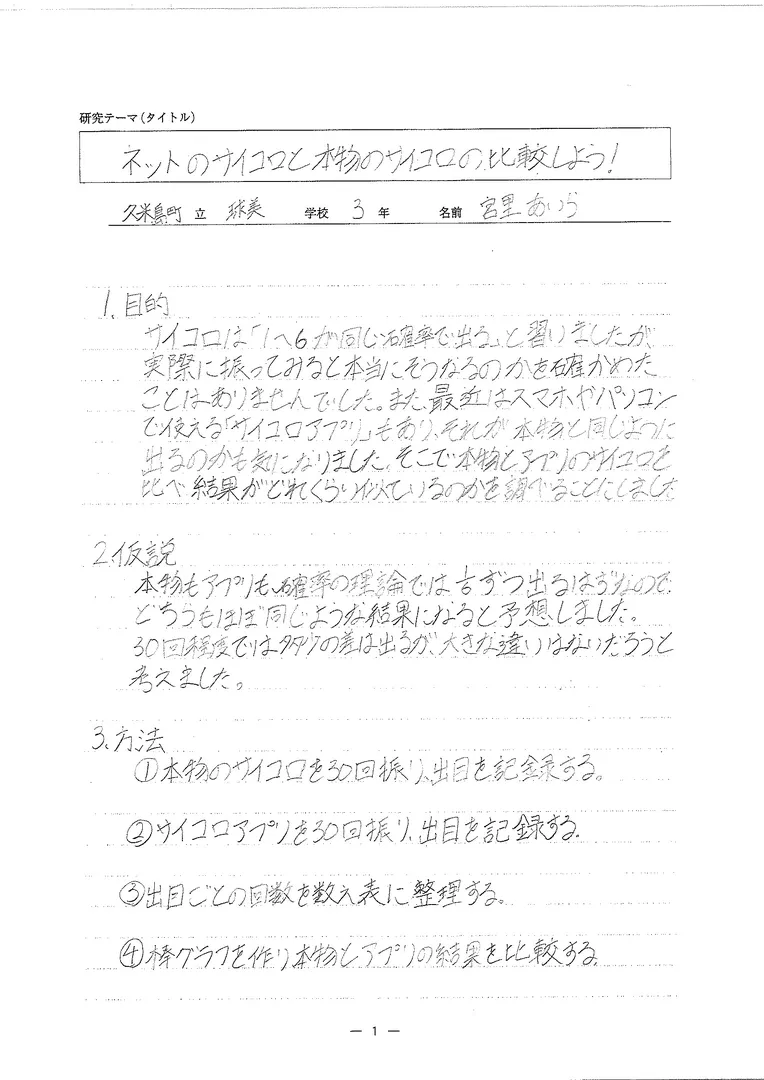 研究テーマ（タイトル）
ネットのサイコロと本物のサイコロの比較しよう！
久米島町 立 球美 学校 3 年 名前 宮里 あいら
1. 目的
サイコロは「1〜6が同じ確率で出る」と習いましたが、
実際に振ってみると本当にそうなるのかを確かめた
ことはありませんでした。また、最近はスマホやパソコン
で使える「サイコロアプリ」もあり、それが本物と同じように
出るのかも気になりました。そこで本物とアプリのサイコロを
比べ結果がどれくらい似ているのかを調べることにしました
2.仮説
本物もアプリも、確率の理論では ずつ出るはずなので、
どちらもほぼ同じような結果になると予想しました。
30回程度では多少の差は出るが、大きな違いはないだろうと
考えました。
3.方法
①本物のサイコロを30回振り、出目を記録する。
②サイコロアプリを30回振り、出目を記録する。
③出目ごとの回数を数え表に整理する。
④棒グラフを作り本物とアプリの結果を比較する。
— 1 —